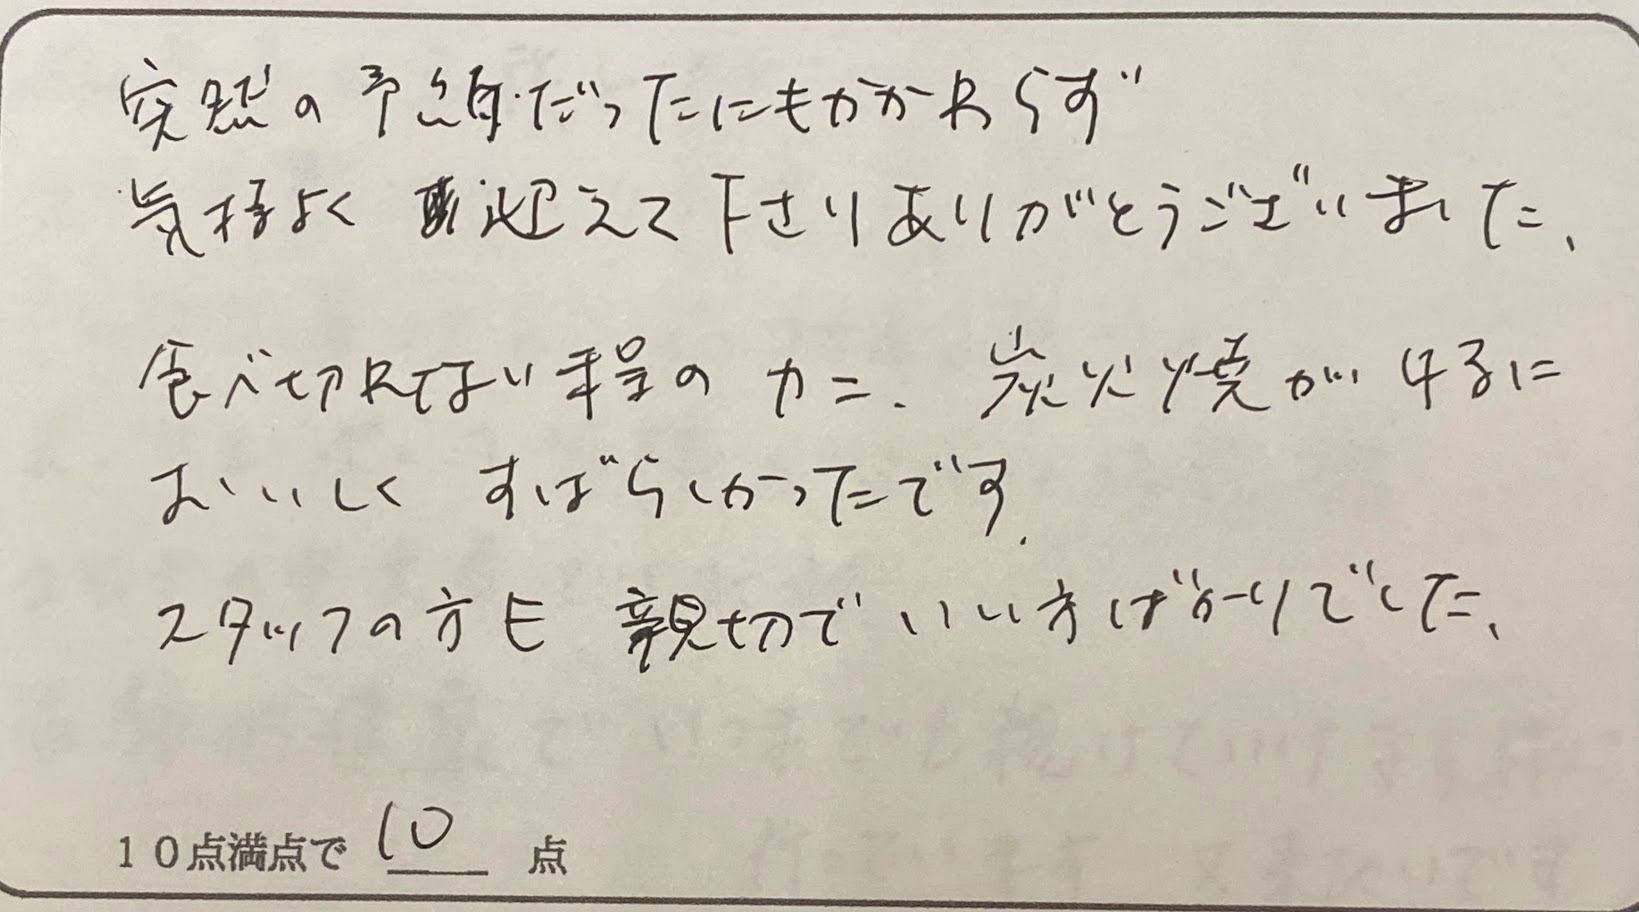 突然の予約だったにもかかわらず
気持よく迎えて下さりありがとうございました、
食べ切れない程のカニ、炭火焼が特に
おいしくすばらしかったです.
スタッフの方も親切でいい方ばかりでした、
10点満点で 10 点